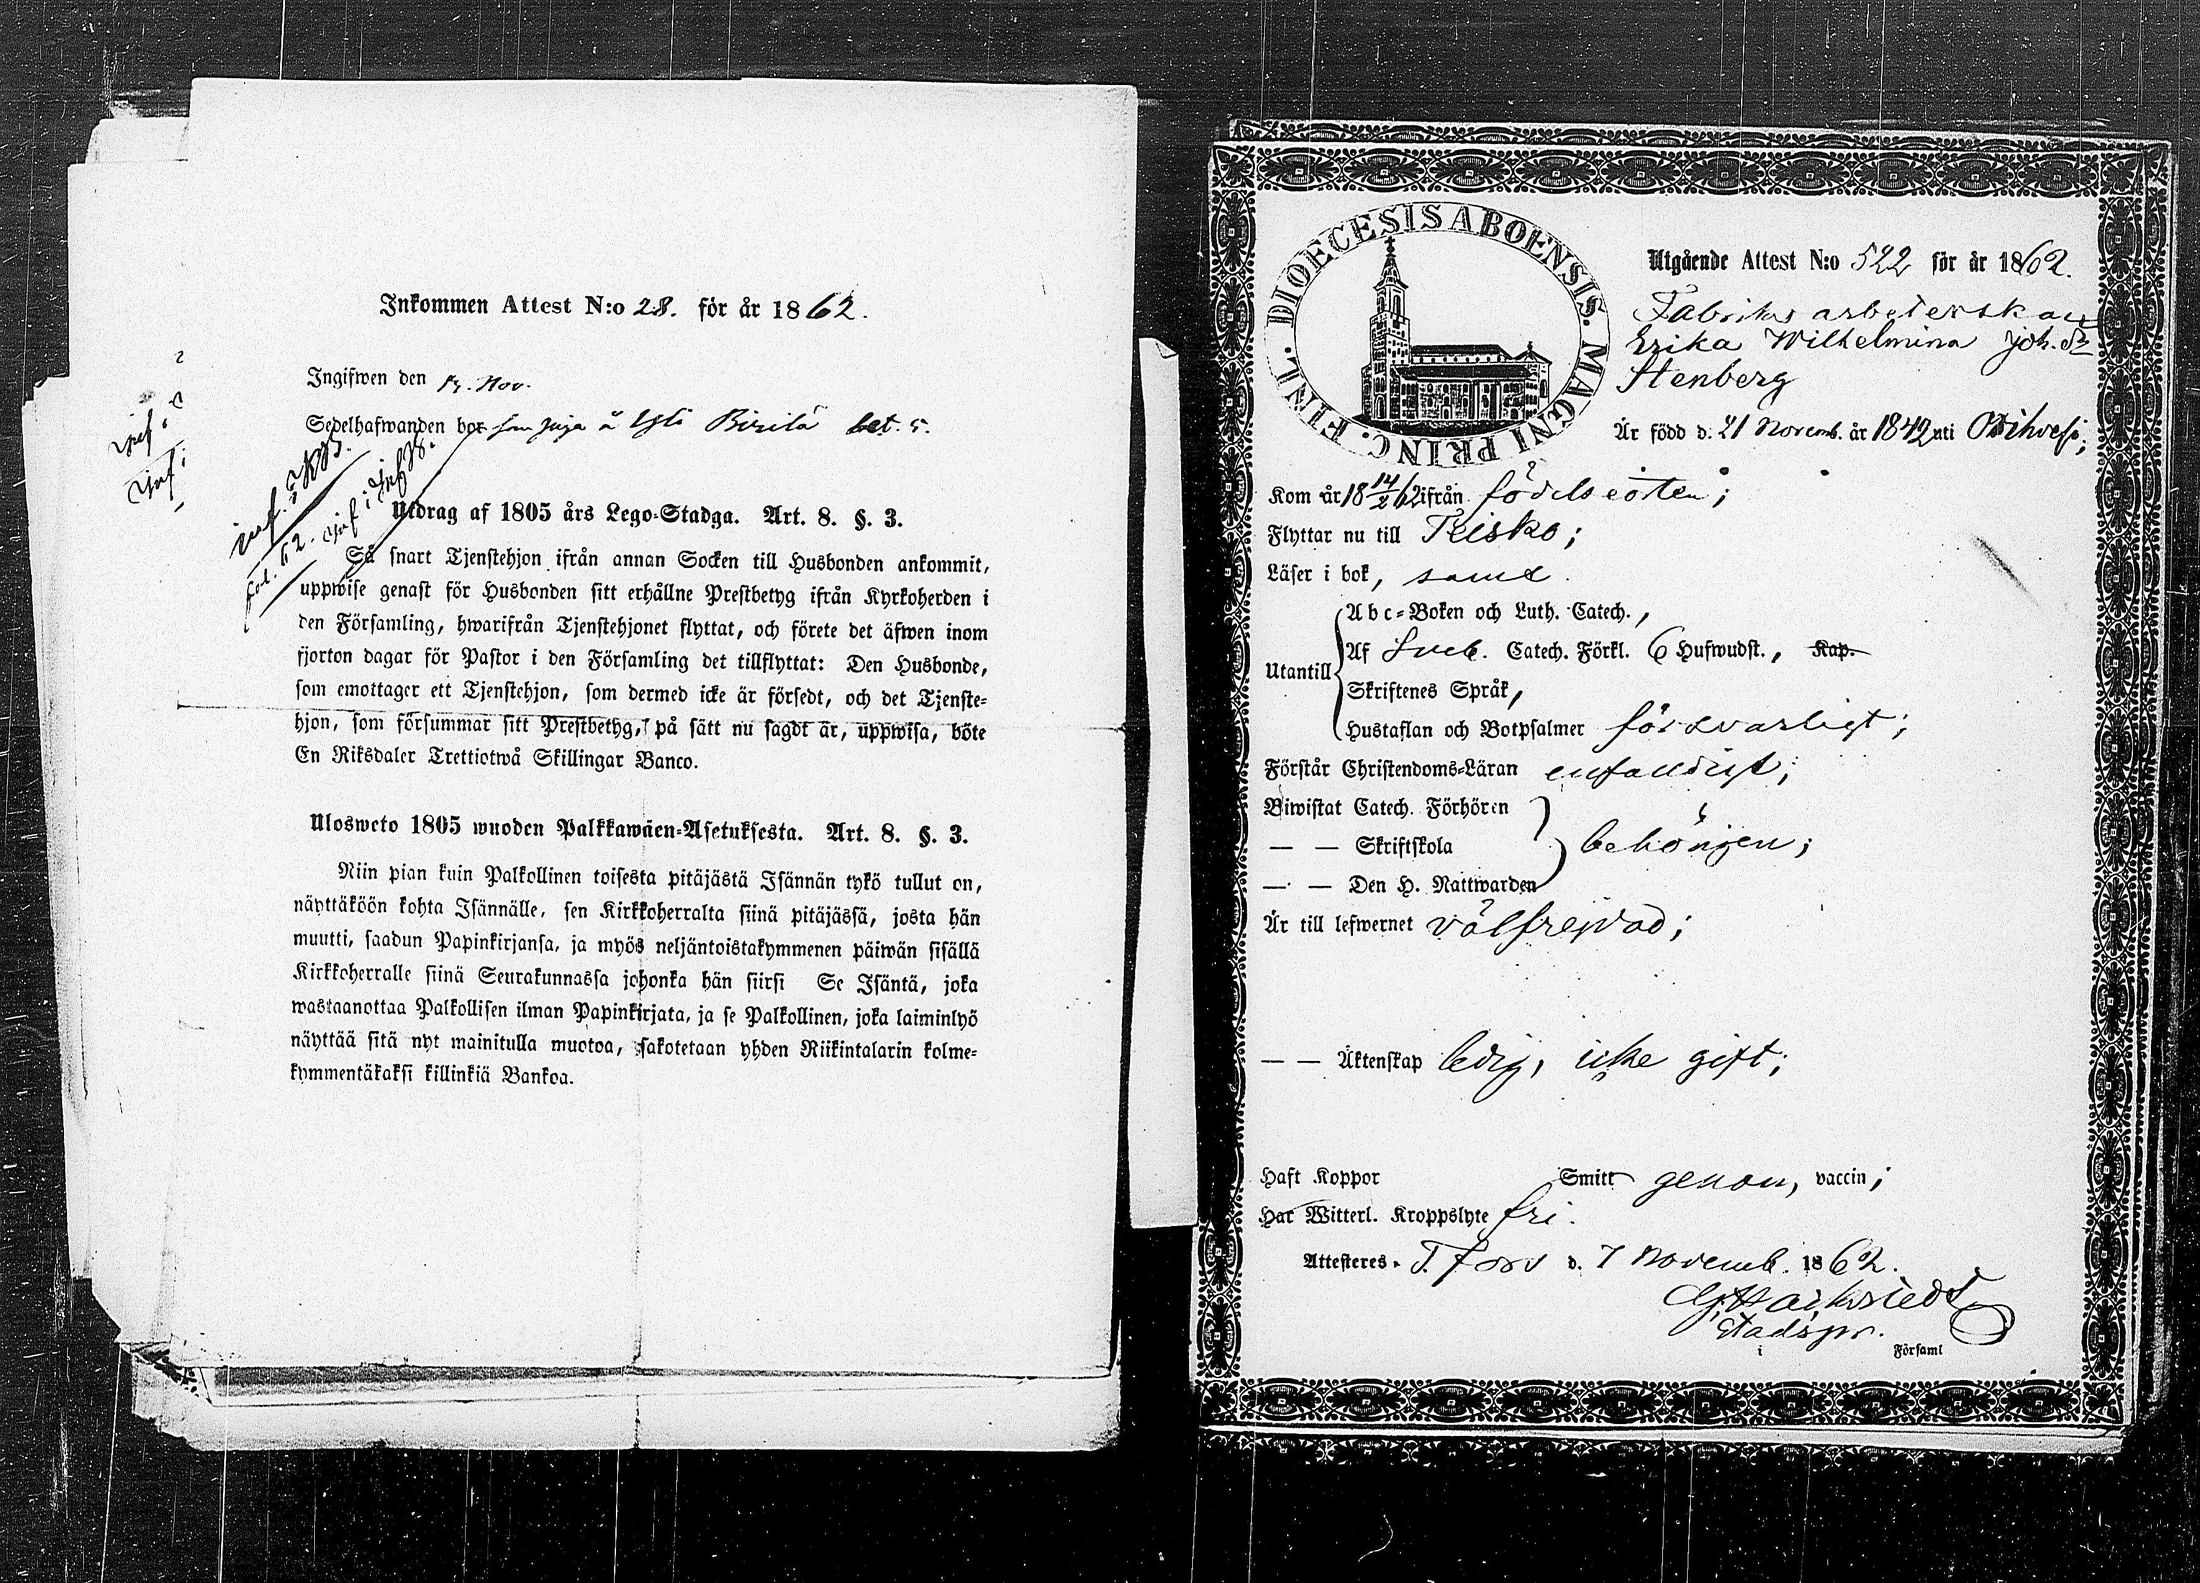 Inkommen Attest N:o 28. för år 1862.
Ingifwen den 13. Nov.
Sedelhafwanden bor som piga å Birilä bet. 5.
inf. i KB.
inf. i
Utdrag af 1805 års Lego-Stadga. Art. 8. §. 3.
Så snart Tjenstehjon ifrån annan Socken till Husbonden ankommit,
uppwise genast för Husbonden sitt erhållne Prestbetyg ifrån Kyrkoherden i
den Församling, hwarifrån Tjenstehjonet flyttat, och förete det äfwen inom
fjorton dagar för Pastor i den Församling det tillflyttat: Den Husbonde,
som emottager ett Tjenstehjon, som dermed icke är försedt, och det Tjenste-
hjon, som försummar sitt Prestbetyg, på sätt nu sagdt är, uppwisa, böte
En Riksdaler Trettiotwå Skillingar Banco.
Ulosweto 1805 wuoden Palkkawäen-Asetuksesta. Art. 8. §. 3.
Niin pian kuin Palkollinen toisesta pitäjästä Isännän tykö tullut on,
näyttäköön kohta Isännälle, sen Kirkkoherralta siinä pitäjässä, josta hän
muutti, saadun Papinkirjansa, ja myös neljäntoistakymmenen päiwän sisällä
Kirkkoherralle siinä Seurakunnassa johonka hän siirsi Se Isäntä, joka
wastaanottaa Palkollisen ilman Papinkirjata, ja se Palkollinen, joka laiminlyö
näyttää sitä nyt mainitulla muotoa, sakotetaan yhden Riikintalarin kolme-
kymmentäkaksi killinkiä Bankoa.
DIOECESIS ABOENSIS. MAGNI PRINC. FINL.
Utgående Attest N:o 522 för år 1862.
Fabriks arbeterskan
Erika Wilhelmina Joh. dr
Stenberg
Är född d. 21 Novemb. år 1842 uti Orihvesi;
Kom år 18 14/X 62 ifrån födelseorten;
Flyttar nu till Teisko;
Läser i bok, samt
Utantill
Abc-Boken och Luth. Catech.,
Af Sveb. Catech. Förkl. 6 Hufwudst., Kap.
Skriftenes Språk,
Hustaflan och Botpsalmer försvarligt;
Förstår Christendoms-Läran enfaldigt;
Biwistat Catech. Förhören
— — Skriftskola behörigen;
— — Den H. Nattwarden
Är till lefwernet välfrejdad;
— — Äktenskap ledig, icke gift;
Haft Koppor Smitt genom, vaccin;
Har Witterl. Kroppslyte fri.
Attesteres. T.fors d. 7 Novemb. 1862.
Stadspr.
i Församl